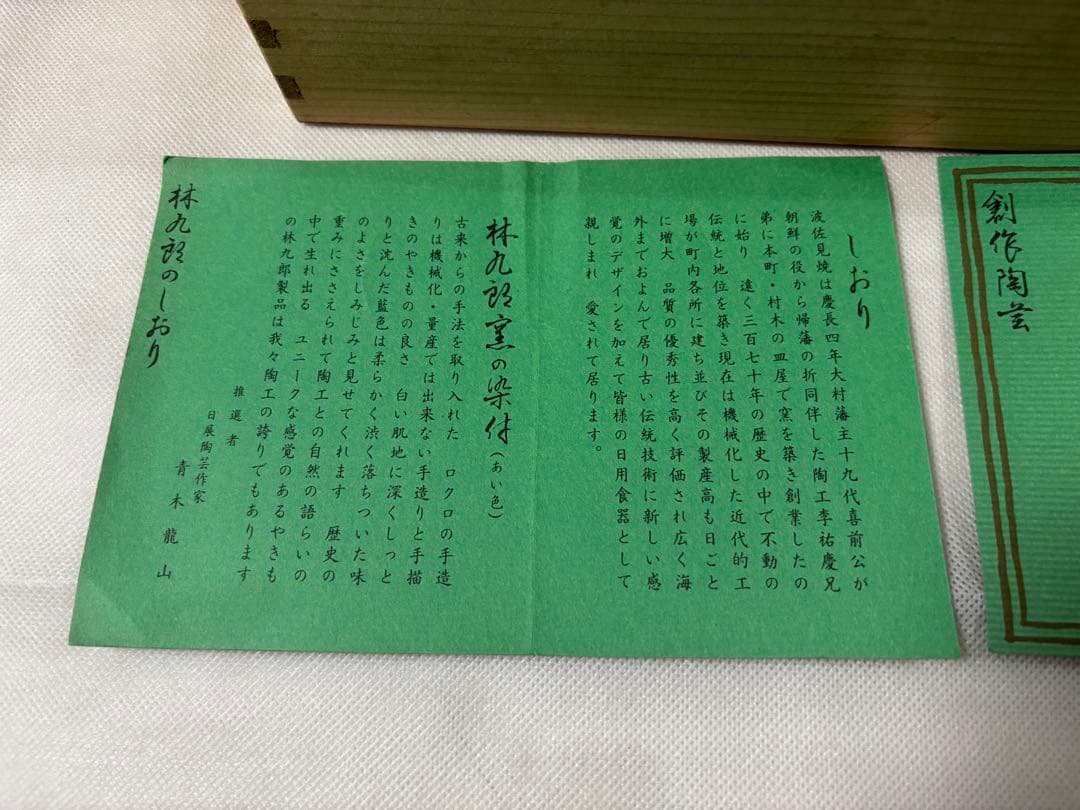 創作陶芸
しおり
波佐見焼は慶長四年大村藩主十九代喜前公が
朝鮮の役から帰藩の折同伴した陶工李祐慶兄
弟に本町・村木の皿屋で窯を築き創業したの
に始り 遠く三百七十年の歴史の中で不動の
伝統と地位を築き現在は機械化した近代的工
場が町内各所に建ち並びその製産高も日ごと
に増大 品質の優秀性を高く評価され広く海
外までおよんで居り古い伝統技術に新しい感
覚のデザインを加えて皆様の日用食器として
親しまれ 愛されて居ります。
林九郎窯の染付(あい色)
古来からの手法を取り入れた ロクロの手造
りは機械化・量産では出来ない手造りと手描
きのやきものの良さ 白い肌地に深くしっと
りと沈んだ藍色は柔らかく渋く落ちついた味
のよさをしみじみと見せてくれます 歴史の
重みにささえられて陶工との自然の語らいの
中で生れ出る ユニークな感覚のあるやきも
の林九郎製品は我々陶工の誇りでもあります
推選者
日展陶芸作家
青木龍山
林九郎のしおり